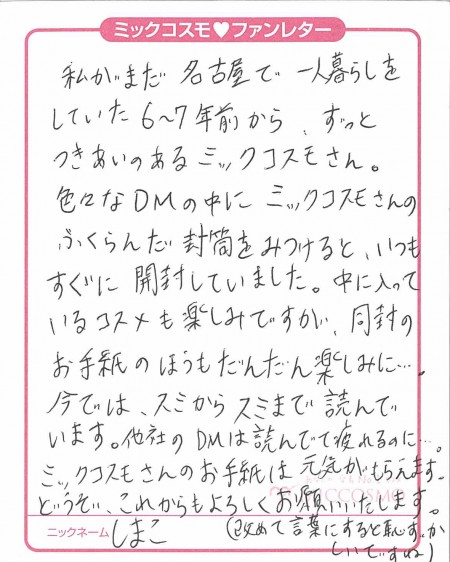 ミックコスモ♥ファンレター
私がまだ 名古屋で 一人暮らしを
していた 6〜7年前から、ずっと
つきあいのある ミックコスモさん。
色々なDMの中に ミックコスモさんの
ふくらんだ 封筒をみつけると、いつも
すぐに 開封していました。中に入って
いるコスメも楽しみですが、同封の
お手紙のほうもだんだん楽しみに…。
今では、スミからスミまで 読んで
います。他社のDMは読んでて疲れるのに…。
ミックコスモさんのお手紙は 元気がもらえます。
どうぞ、これからもよろしくお願いいたします。
ニックネーム しまこ
(改めて言葉にすると恥ずか
しいですね)